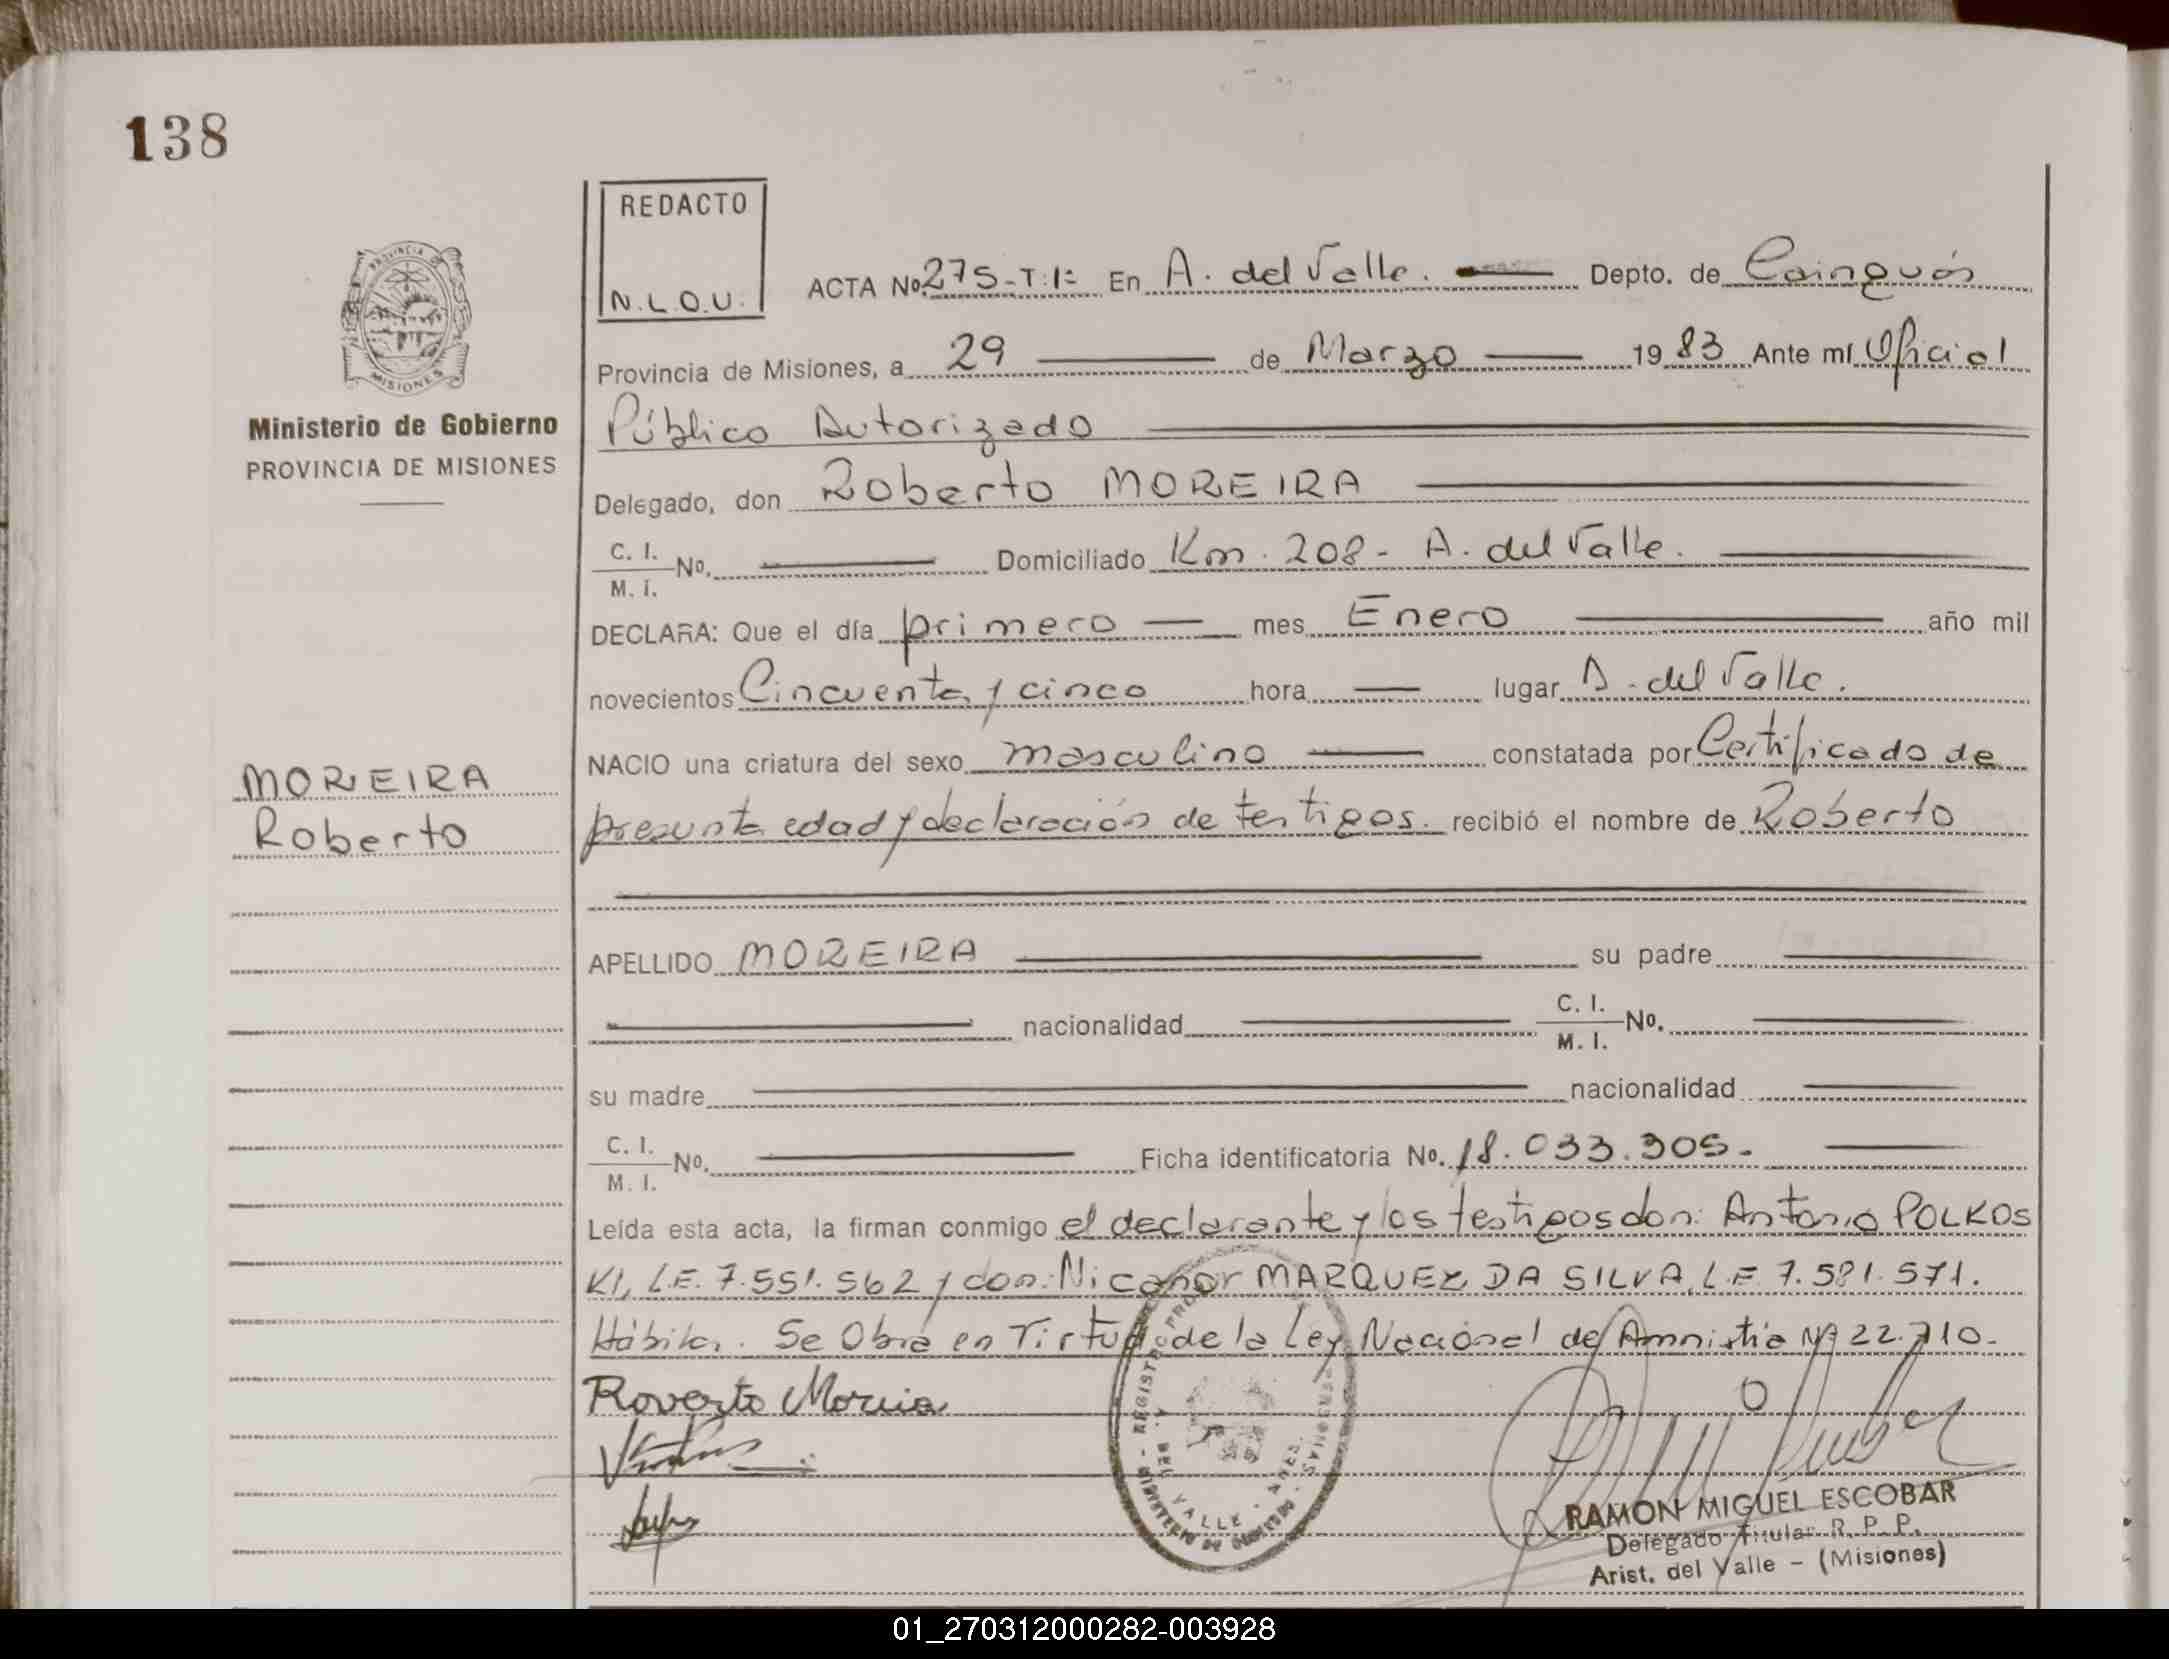 138
REDACTO
N.L.O.U.
ACTA No. 275-T:1º En A. del Valle. Depto. de Cainguás
Provincia de Misiones, a 29 de Marzo 1983 Ante mí Oficial
Público Autorizado
Delegado, don Roberto MOREIRA
C. I.
M. I. No. Domiciliado Km. 208- A. del Valle.
DECLARA: Que el día primero mes Enero año mil
novecientos Cincuenta y cinco hora lugar A. del Valle.
NACIO una criatura del sexo masculino constatada por Certificado de
presunta edad y declaración de testigos. recibió el nombre de Roberto
APELLIDO MOREIRA su padre
nacionalidad C. I.
M. I. No.
su madre nacionalidad
C. I.
M. I. No. Ficha identificatoria No. 18.033.305.-
Leída esta acta, la firman conmigo el declarante y los testigos don: Antonio POLKOS
KI, L.E. 7.551.562 y don: Nicanor MARQUEZ DA SILVA, L.E. 7.581.571.
Hábiles. Se Obra en Virtud de la Ley Nacional de Amnistia Nº 22.710.-
Roverto Moreia
PROVINCIA DE
MISIONES
Ministerio de Gobierno
PROVINCIA DE MISIONES
MOREIRA
Roberto
REGISTRO PROV
DEL VALLE
MINISTERIO DE GOBIERNO
RAMON MIGUEL ESCOBAR
Delegado Titular R. P. P.
Arist. del Valle - (Misiones)
01_270312000282-003928